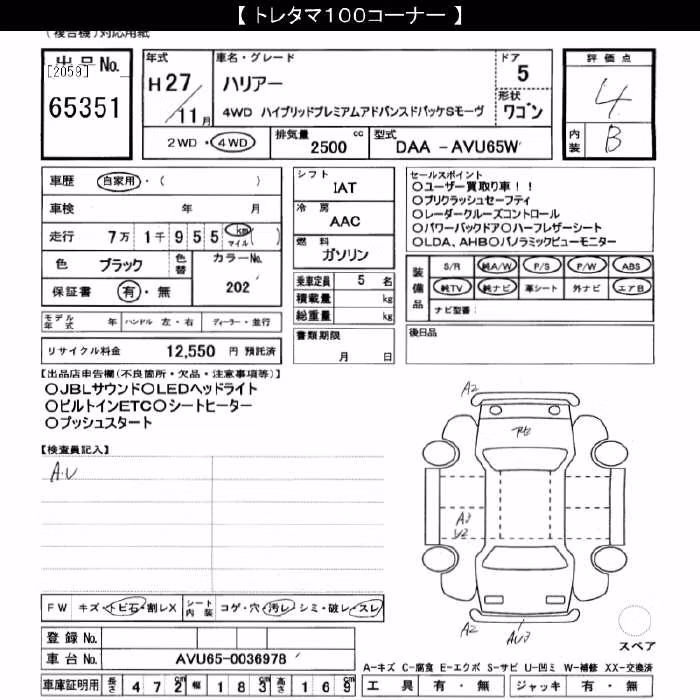 【 トレタマ100コーナー 】
(複合機)対応用紙
出品No.
[2059]
65351
年式
H27/11月
車名・グレード
ハリアー
4WD ハイブリッドプレミアムアドバンスドパッケSモーヴ
ドア
5
形状
ワゴン
評価点
4
内装
B
2WD・4WD
排気量
2500 cc
型式
DAA -AVU65W
車歴 自家用・( )
車検 年 月
走行 7万 1千 955 km マイル ( )
色 ブラック 色替
カラーNo.
202
保証書 有・無
モデル年式 年 ハンドル 左・右 ディーラー・並行
リサイクル料金 12,550 円 預託済
シフト
IAT
冷房
AAC
燃料
ガソリン
乗車定員 5 名
積載量 kg
総重量 kg
書類期限
月 日
セールスポイント
○ユーザー買取り車!!
○プリクラッシュセーフティ
○レーダークルーズコントロール
○パワーバックドア○ハーフレザーシート
○LDA、AHB○パノラミックビューモニター
装備品
S/R 純A/W P/S P/W ABS
純TV 純ナビ 革シート 外ナビ エアB
ナビ型番:
後日品
【出品店申告欄(不良箇所・欠品・注意事項等)】
○JBLサウンド○LEDヘッドライト
○ビルトインETC○シートヒーター
○プッシュスタート
【検査員記入】
A.U
A2
A3
U2
A2
AU3
FW キズ・トビ石・割レX
シート内装 コゲ・穴・汚レ・シミ・破レ・スレ
登録No.
車台No. AVU65-0036978
スペア
A-キズ C-腐食 E-エクボ S-サビ U-凹ミ W-補修 XX-交換済
車庫証明用 長さ 472cm 幅 183cm 高さ 169cm
工具 有・無 ジャッキ 有・無